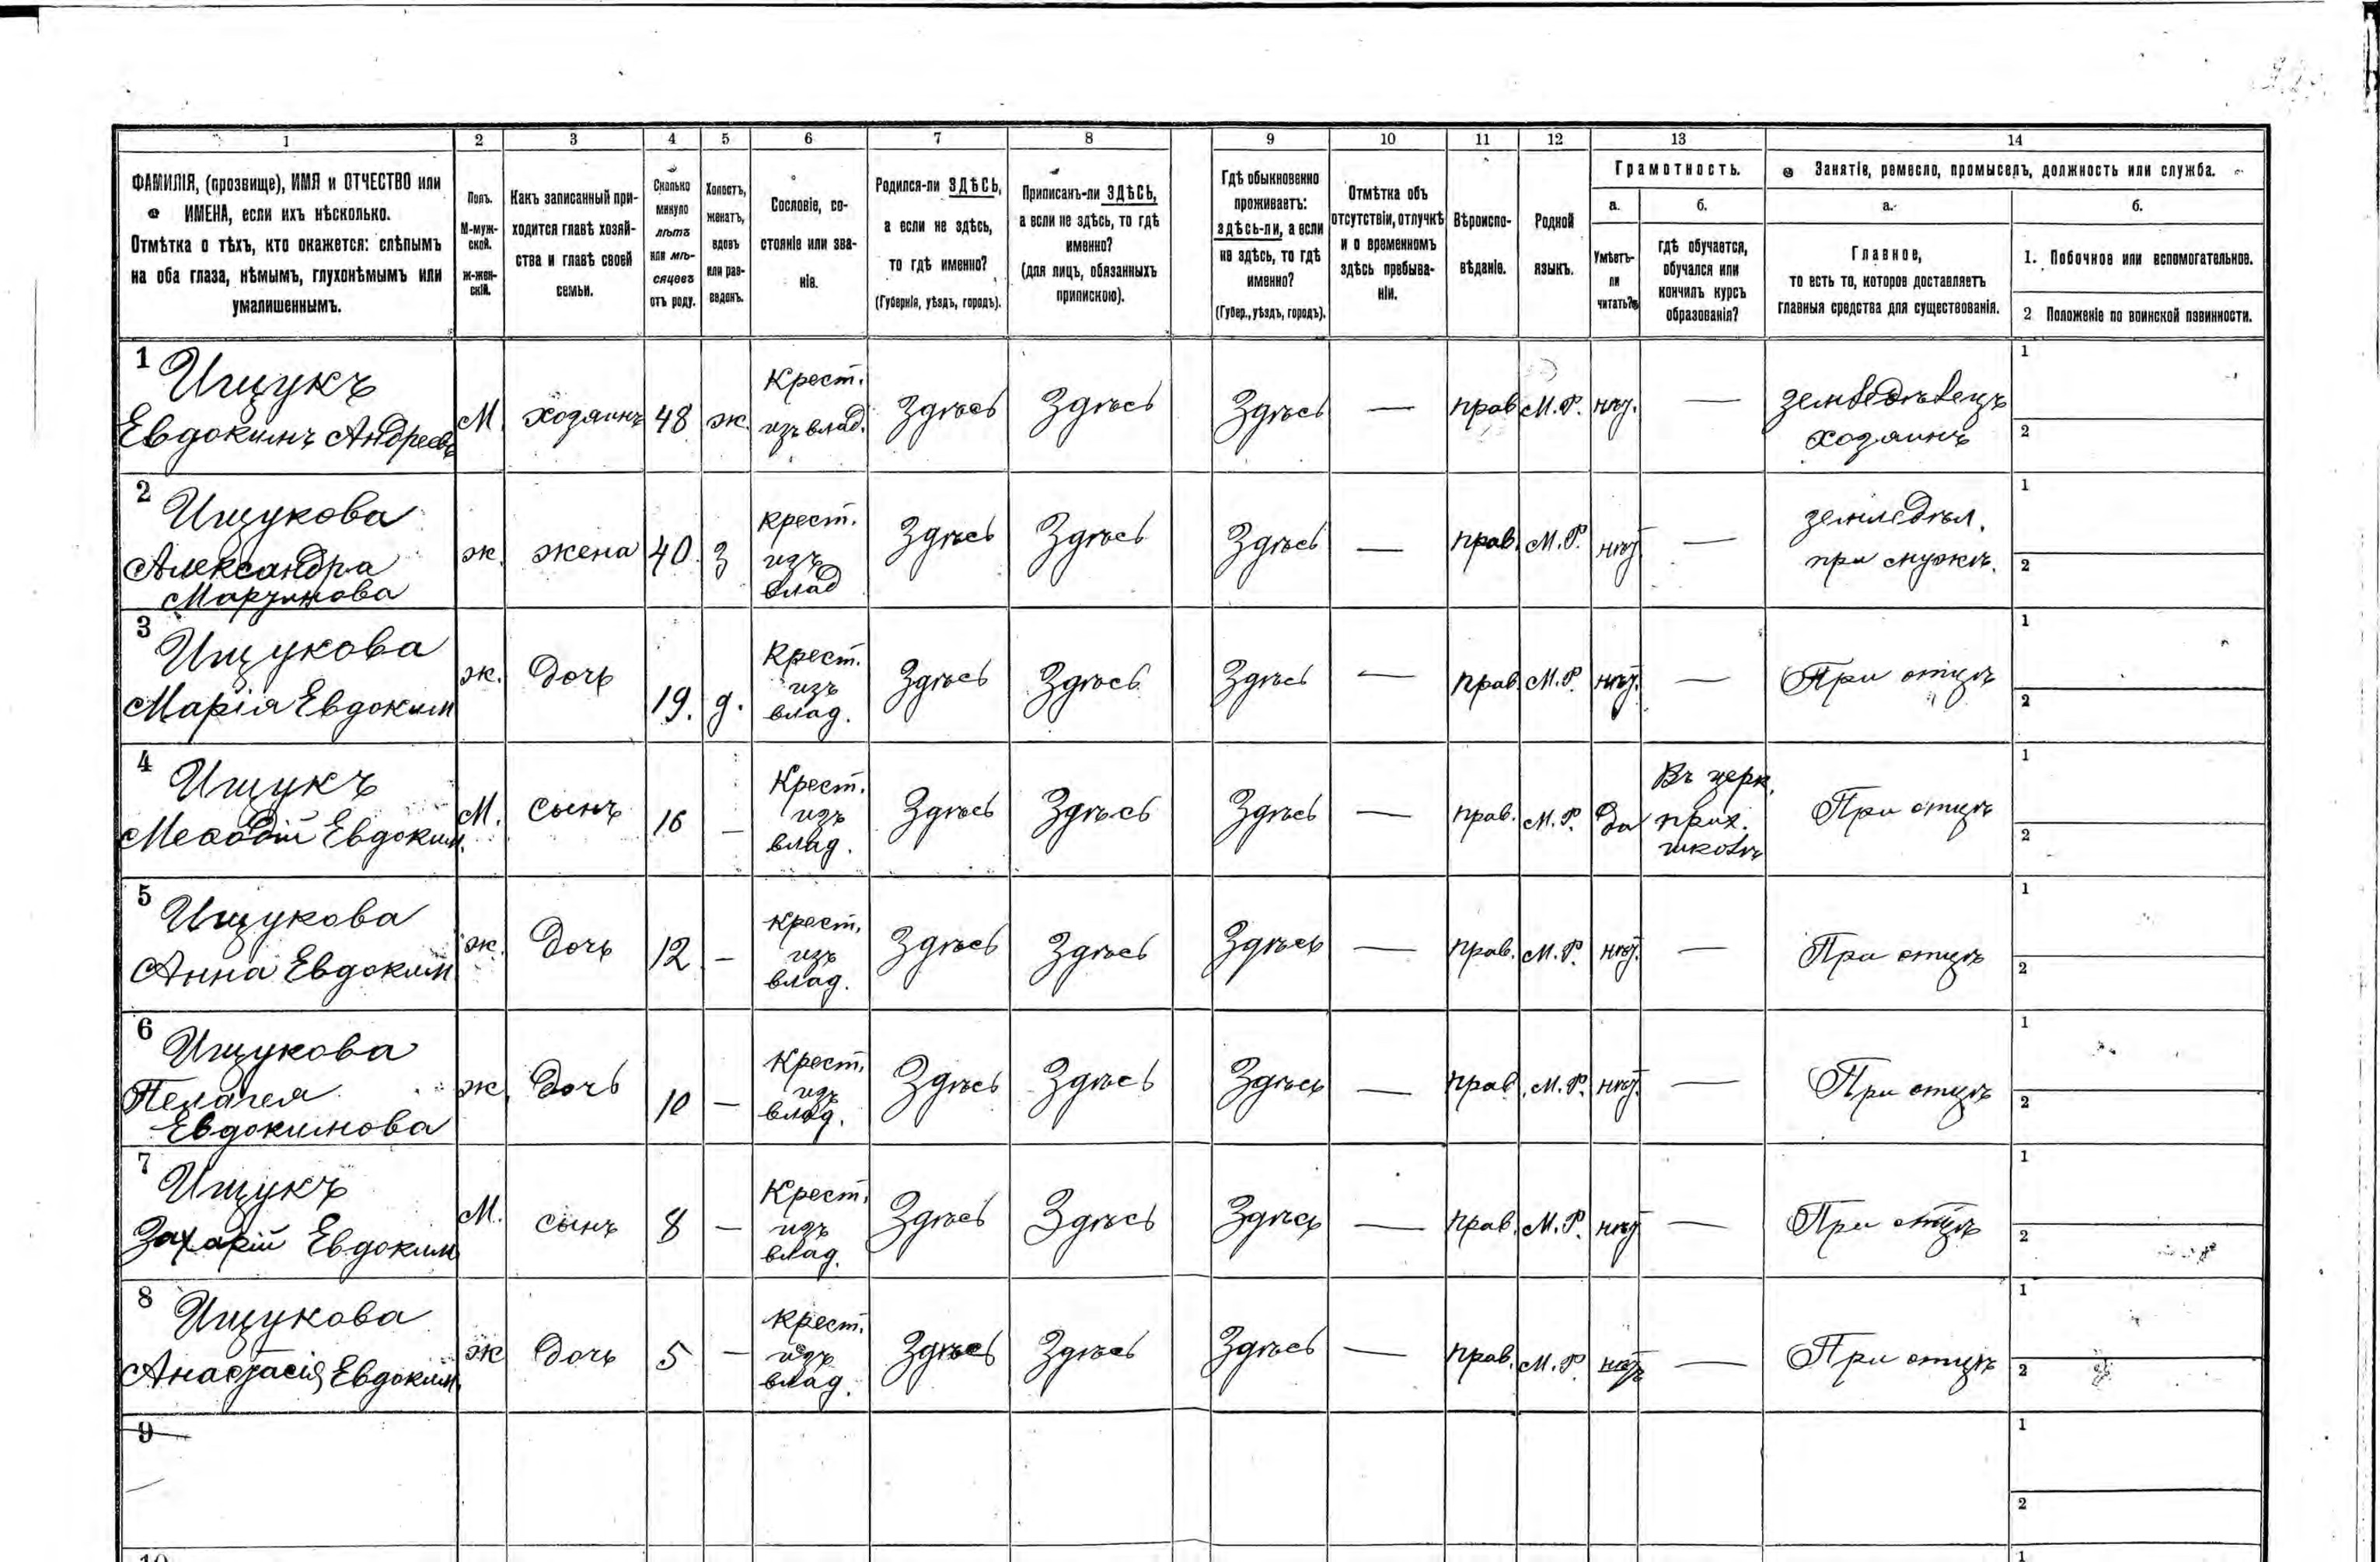 1 2 3 4 5 6 7 8 9 10 11 12 13 14
ФАМИЛІЯ, (прозвище), ИМЯ и ОТЧЕСТВО или
ИМЕНА, если ихъ нѣсколько.
Отмѣтка о тѣхъ, кто окажется: слѣпымъ
на оба глаза, нѣмымъ, глухонѣмымъ или
умалишеннымъ.
Полъ.
М-муж-
ской.
ж-жен-
скій.
Какъ записанный при-
ходится главѣ хозяй-
ства и главѣ своей
семьи.
Сколько
минуло
лѣтъ
или мѣ-
сяцевъ
отъ роду.
Холостъ,
женатъ,
вдовъ
или раз-
веденъ.
Сословіе, со-
стояніе или зва-
ніе.
Родился-ли ЗДѢСЬ,
а если не здѣсь,
то гдѣ именно?
(Губернія, уѣздъ, городъ).
Приписанъ-ли ЗДѢСЬ,
а если не здѣсь, то гдѣ
именно?
(для лицъ, обязанныхъ
припискою).
Гдѣ обыкновенно
проживаетъ:
здѣсь-ли, а если
не здѣсь, то гдѣ
именно?
(Губер., уѣздъ, городъ).
Отмѣтка объ
отсутствіи, отлучкѣ
и о временномъ
здѣсь пребыва-
ніи.
Вѣроиспо-
вѣданіе.
Родной
языкъ.
Грамотность.
а.
Умѣетъ-
ли
читать?
б.
гдѣ обучается,
обучался или
кончилъ курсъ
образованія?
Занятіе, ремесло, промыселъ, должность или служба.
а.
Главное,
то есть то, которое доставляетъ
главныя средства для существованія.
б.
1. Побочное или вспомогательное.
2 Положеніе по воинской повинности.
1 Ищукъ
Евдокимъ Андреевъ
М. хозяинъ 48 ж.
Крест.
изъ влад.
Здѣсь Здѣсь Здѣсь — прав. М.Р. нѣт. —
земледѣлецъ
хозяинъ
1
2
2 Ищукова
Александра
Мартинова
ж. жена 40. з
крест.
изъ
влад
Здѣсь Здѣсь Здѣсь — прав. М.Р. нѣт —
земледѣл.
при мужѣ.
1
2
3 Ищукова
Марія Евдоким
ж. Дочь 19. д.
Крест.
изъ
влад.
Здѣсь Здѣсь Здѣсь — прав. М.Р. нѣт. — При отцѣ
1
2
4 Ищукъ
Мефодій Евдоким.
М. сынъ 16 —
Крест.
изъ
влад.
Здѣсь Здѣсь Здѣсь — прав. М.Р. да
Въ церк.
прих.
школѣ
При отцѣ
1
2
5 Ищукова
Анна Евдоким
ж. Дочь 12 —
крест.
изъ
влад.
Здѣсь Здѣсь Здѣсь — прав. М.Р. нѣт. — При отцѣ
1
2
6 Ищукова
Пелагея
Евдокимова
ж. Дочь 10 —
Крест.
изъ
влад.
Здѣсь Здѣсь Здѣсь — прав. М.Р. нѣт. — При отцѣ
1
2
7 Ищукъ
Захарій Евдоким
М. сынъ 8 —
Крест.
изъ
влад.
Здѣсь Здѣсь Здѣсь — прав. М.Р. нѣт — При отцѣ
1
2
8 Ищукова
Анастасія Евдоким.
ж Дочь 5 —
крест.
изъ
влад.
Здѣсь Здѣсь Здѣсь — прав. М.Р. нѣтъ — При отцѣ
1
2
9
1
2
10
1